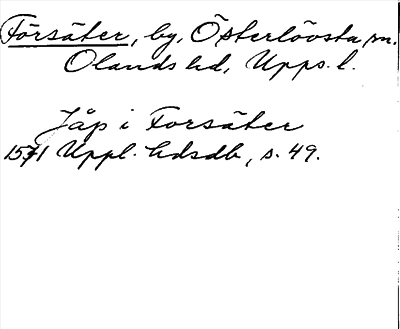 Försäter, by, Österlövsta sn.
Olands hd, Upps. l.
Jåp i Forsäter
1571 Uppl. hdsdb, s. 49.